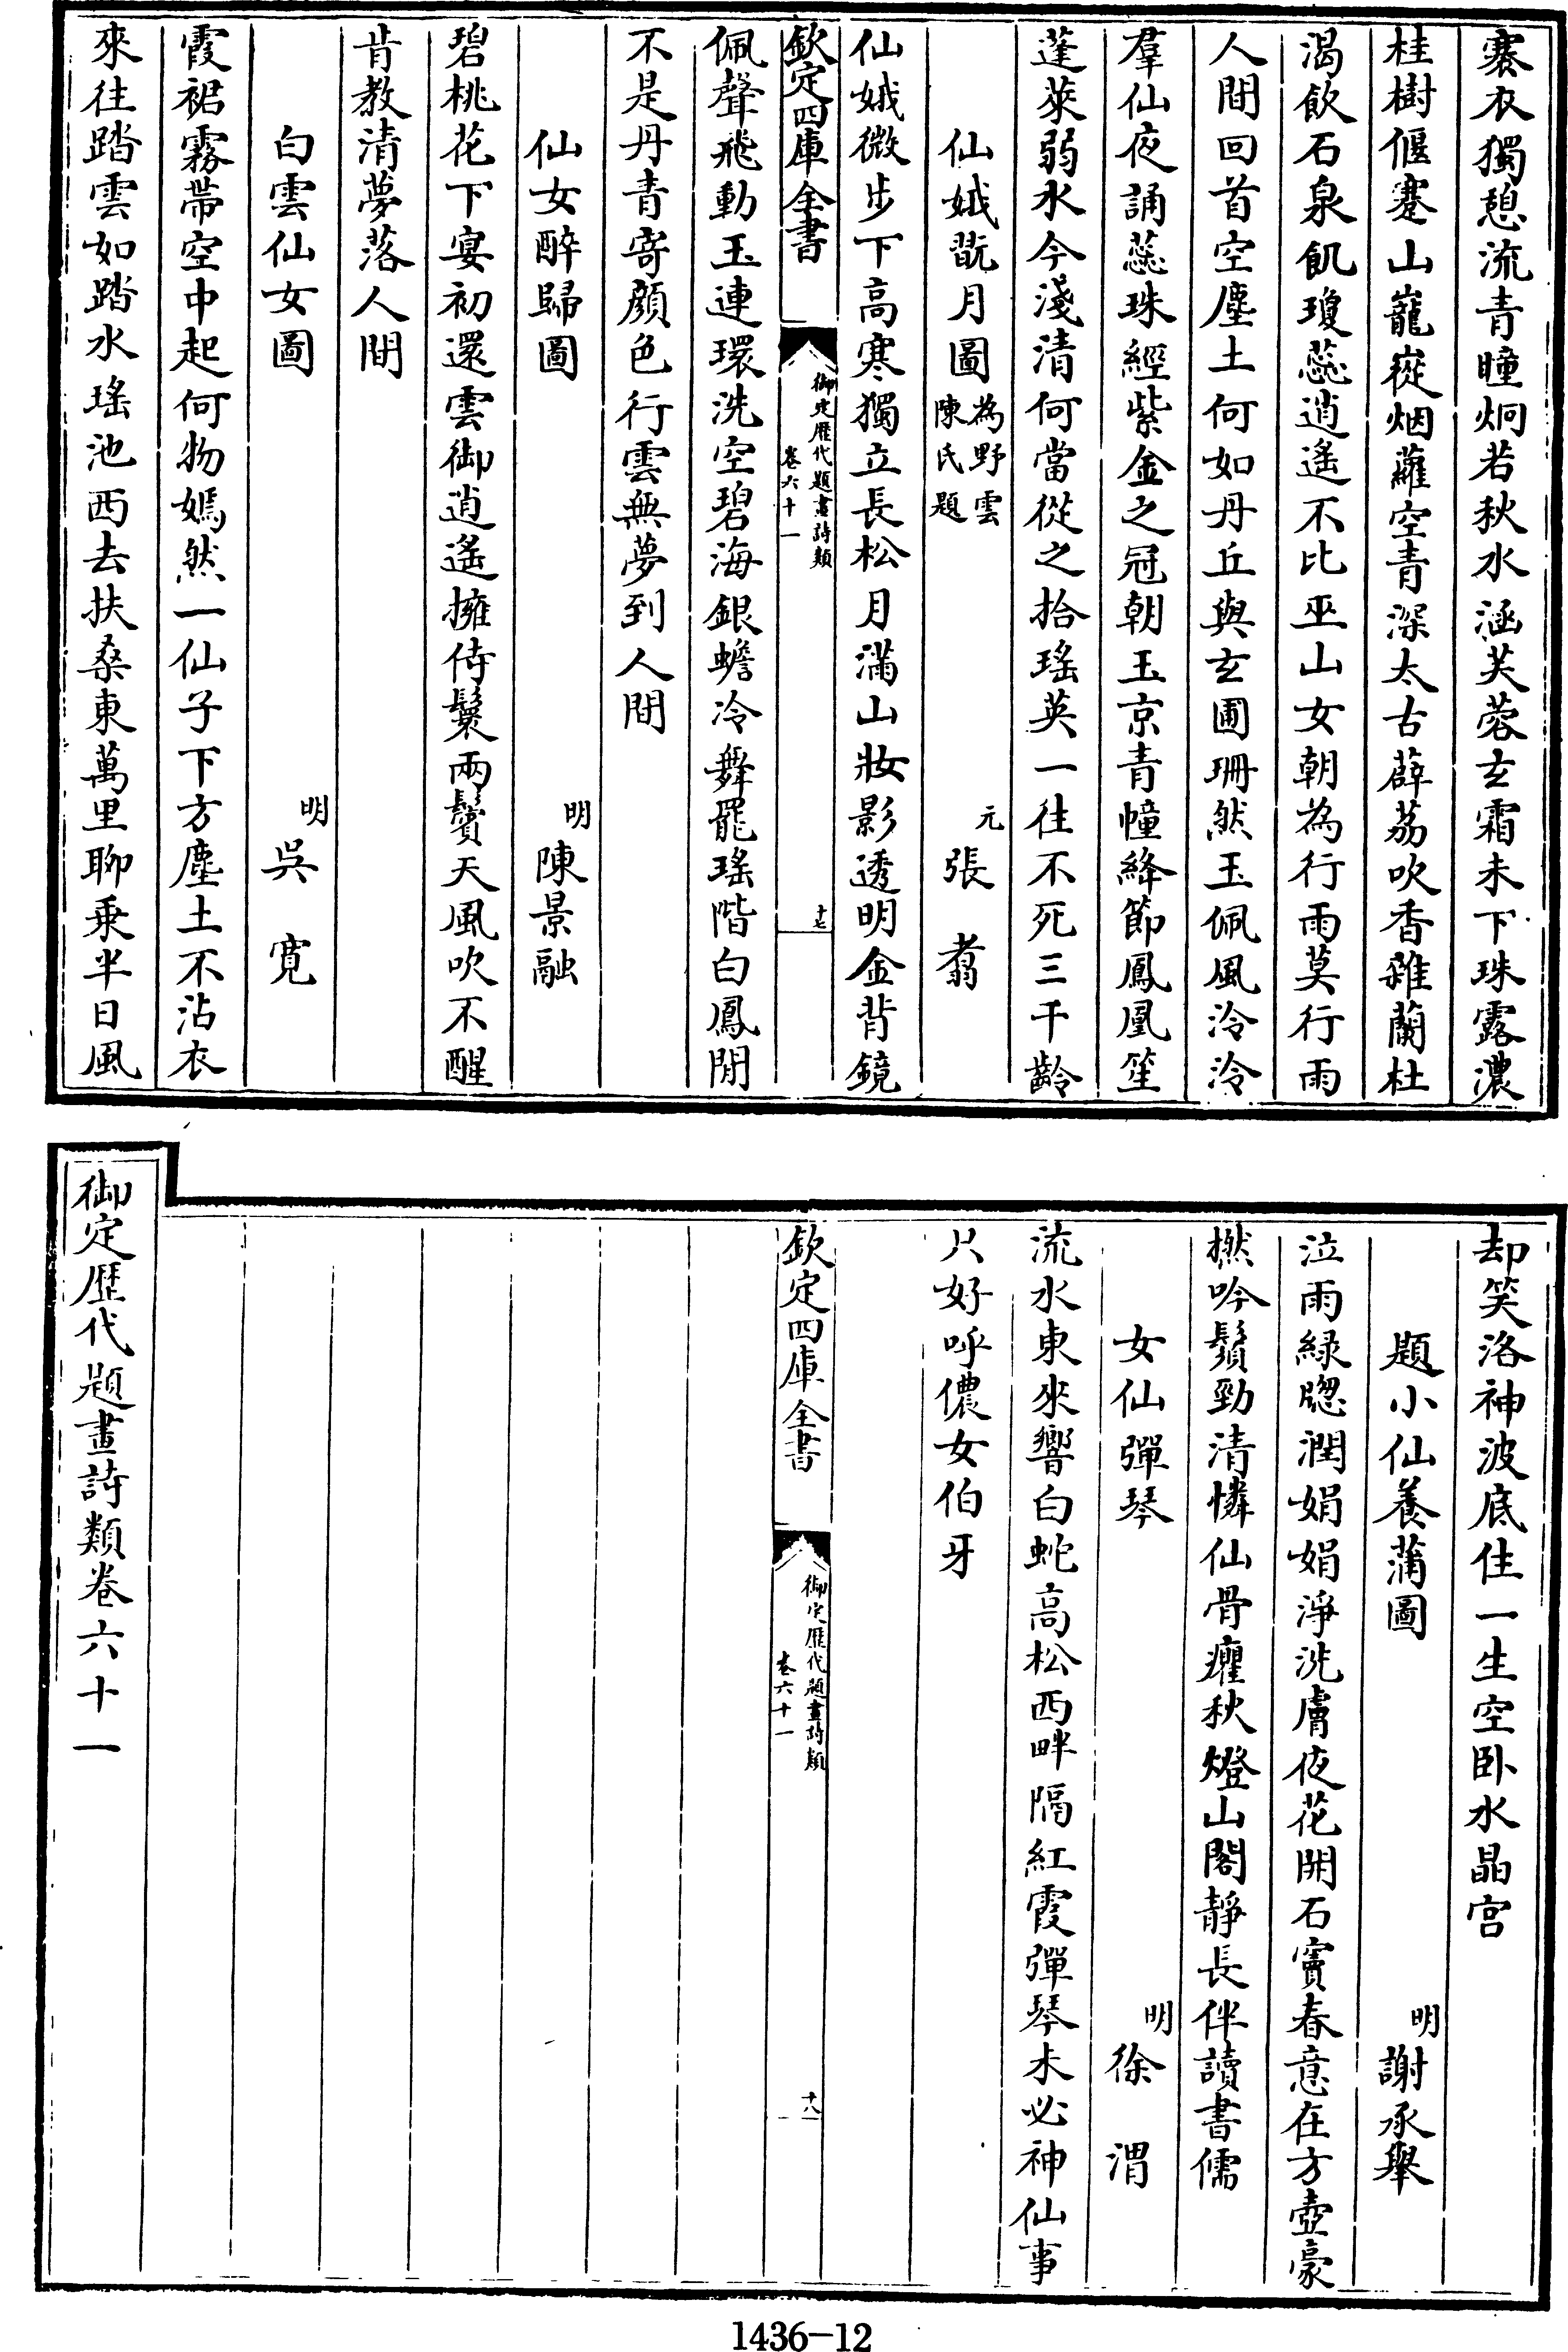 褰衣獨憩流青瞳炯若秋水涵芙蓉玄霜未下珠露濃
桂樹偃蹇山巃嵸烟蘿空青深太古薜荔吹香雜蘭杜
渴飲石泉飢瓊蕊逍遙不比巫山女朝為行雨莫行雨
人間回首空塵土何如丹丘與玄圃珊然玉佩風泠泠
羣仙夜誦蕊珠經紫金之冠朝玉京青幢絳節鳳凰笙
蓬萊弱水今淺清何當從之拾瑤英一往不死三千齡
仙娥翫月圖 為野雲陳氏題 元 張翥
仙娥微步下高寒獨立長松月滿山妝影透明金背鏡
欽定四庫全書 御定歷代題畫詩類 卷六十一 十七
佩聲飛動玉連環洗空碧海銀蟾冷舞罷瑤階白鳳閒
不是丹青寄顏色行雲無夢到人間
仙女醉歸圖 明 陳景融
碧桃花下宴初還雲御逍遙擁侍鬟兩鬢天風吹不醒
肯教清夢落人間
白雲仙女圖 明 吳寬
霞裙霧帶空中起何物嫣然一仙子下方塵土不沾衣
來往踏雲如踏水瑤池西去扶桑東萬里聊乗半日風
却笑洛神波底住一生空卧水晶宫
題小仙養蒲圖 明 謝承舉
泣雨緑牕潤娟娟淨洗膚夜花開石竇春意在方壺豪
撚吟鬚勁清憐仙骨癯秋燈山閣靜長伴讀書儒
女仙彈琴 明 徐渭
流水東來響白蛇高松西畔隔紅霞彈琴未必神仙事
只好呼儂女伯牙
欽定四庫全書 御定歷代題畫詩類 卷六十一 十八
御定歷代題畫詩類卷六十一
1436-12